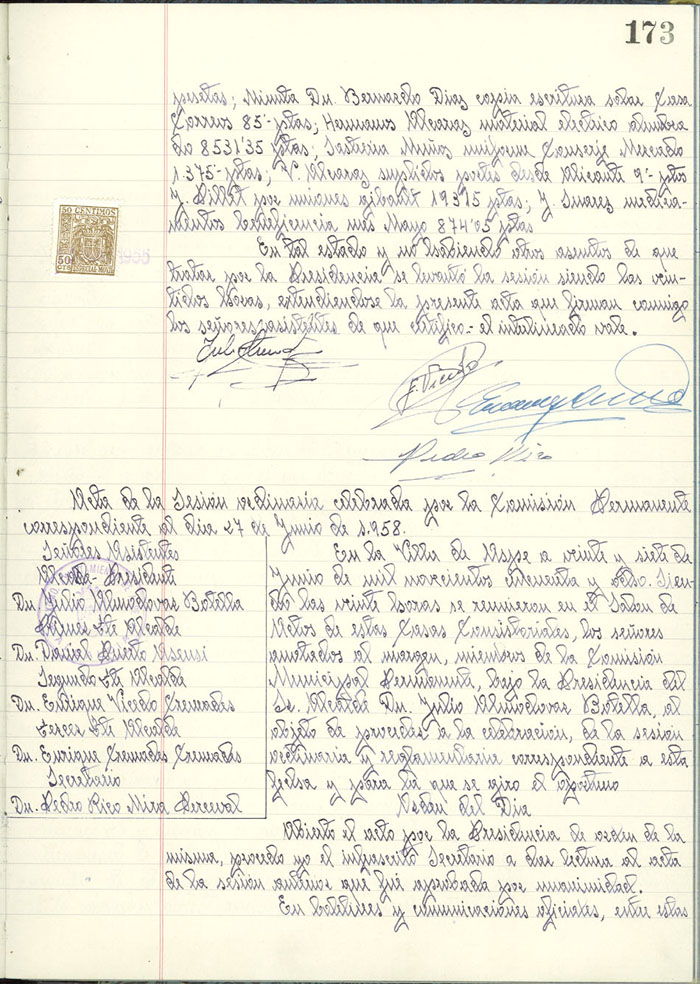 173
pesetas; Minuta Dn. Bernardo Diaz copia escritura solar Casa
Correos 85'- ptas; Hermanos Alcaraz material electrico alumbra
do 8531'35 ptas; Sastreria Muñoz uniforme Conserje Mercado
1.375- ptas; V. Alcaraz suplidos portes desde Alicante 9'- ptas
J. Billet por uniones gibault 193'15 ptas; J. Suarez medica-
mentos beneficencia mes Mayo 874'05 ptas
En tal estado y no habiendo otros asuntos de que
tratar por la Presidencia se levantó la sesión siendo las vein-
tidos horas, extendiendose la presente acta que firman conmigo
los señores asistentes de que certifico.- el interlineado vale.
50 CENTIMOS
50
CTS
ESPECIAL MOVIL
E. Vicedo
Pedro Rico
Acta de la Sesión ordinaria celebrada por la Comisión Permanente
correspondiente al dia 27 de Junio de 1.958.
Señores Asistentes
Alcalde-Presidente
Dn. Julio Almodovar Botella
Primer Tte Alcalde
Dn. Daniel Puerto Asensi
Segundo Tte Alcalde
Dn. Enrique Vicedo Cremades
Tercer Tte Alcalde
Dn. Enrique Cremades Cremades
Secretario
Dn. Pedro Rico Mira Perceval
En la Villa de Aspe a veinte y siete de
Junio de mil novecientos cincuenta y ocho. Sien
do las veinte horas se reunieron en el Salon de
Actos de estas Casas Consistoriales, los señores
anotados al margen, miembros de la Comisión
Municipal Permanente, bajo la Presidencia del
Sr. Alcalde Dn. Julio Almodovar Botella, al
objeto de proceder a la celebracion, de la sesión
ordinaria y reglamentaria correspondiente a esta
fecha y para la que se giro el oportuno
Orden del Dia
Abierto el acto por la Presidencia de orden de la
misma, procedo yo el infrascrito Secretario a dar lectura al acta
de la sesión anterior que fué aprobada por unanimidad.
En boletines y comunicaciones oficiales, entre estas